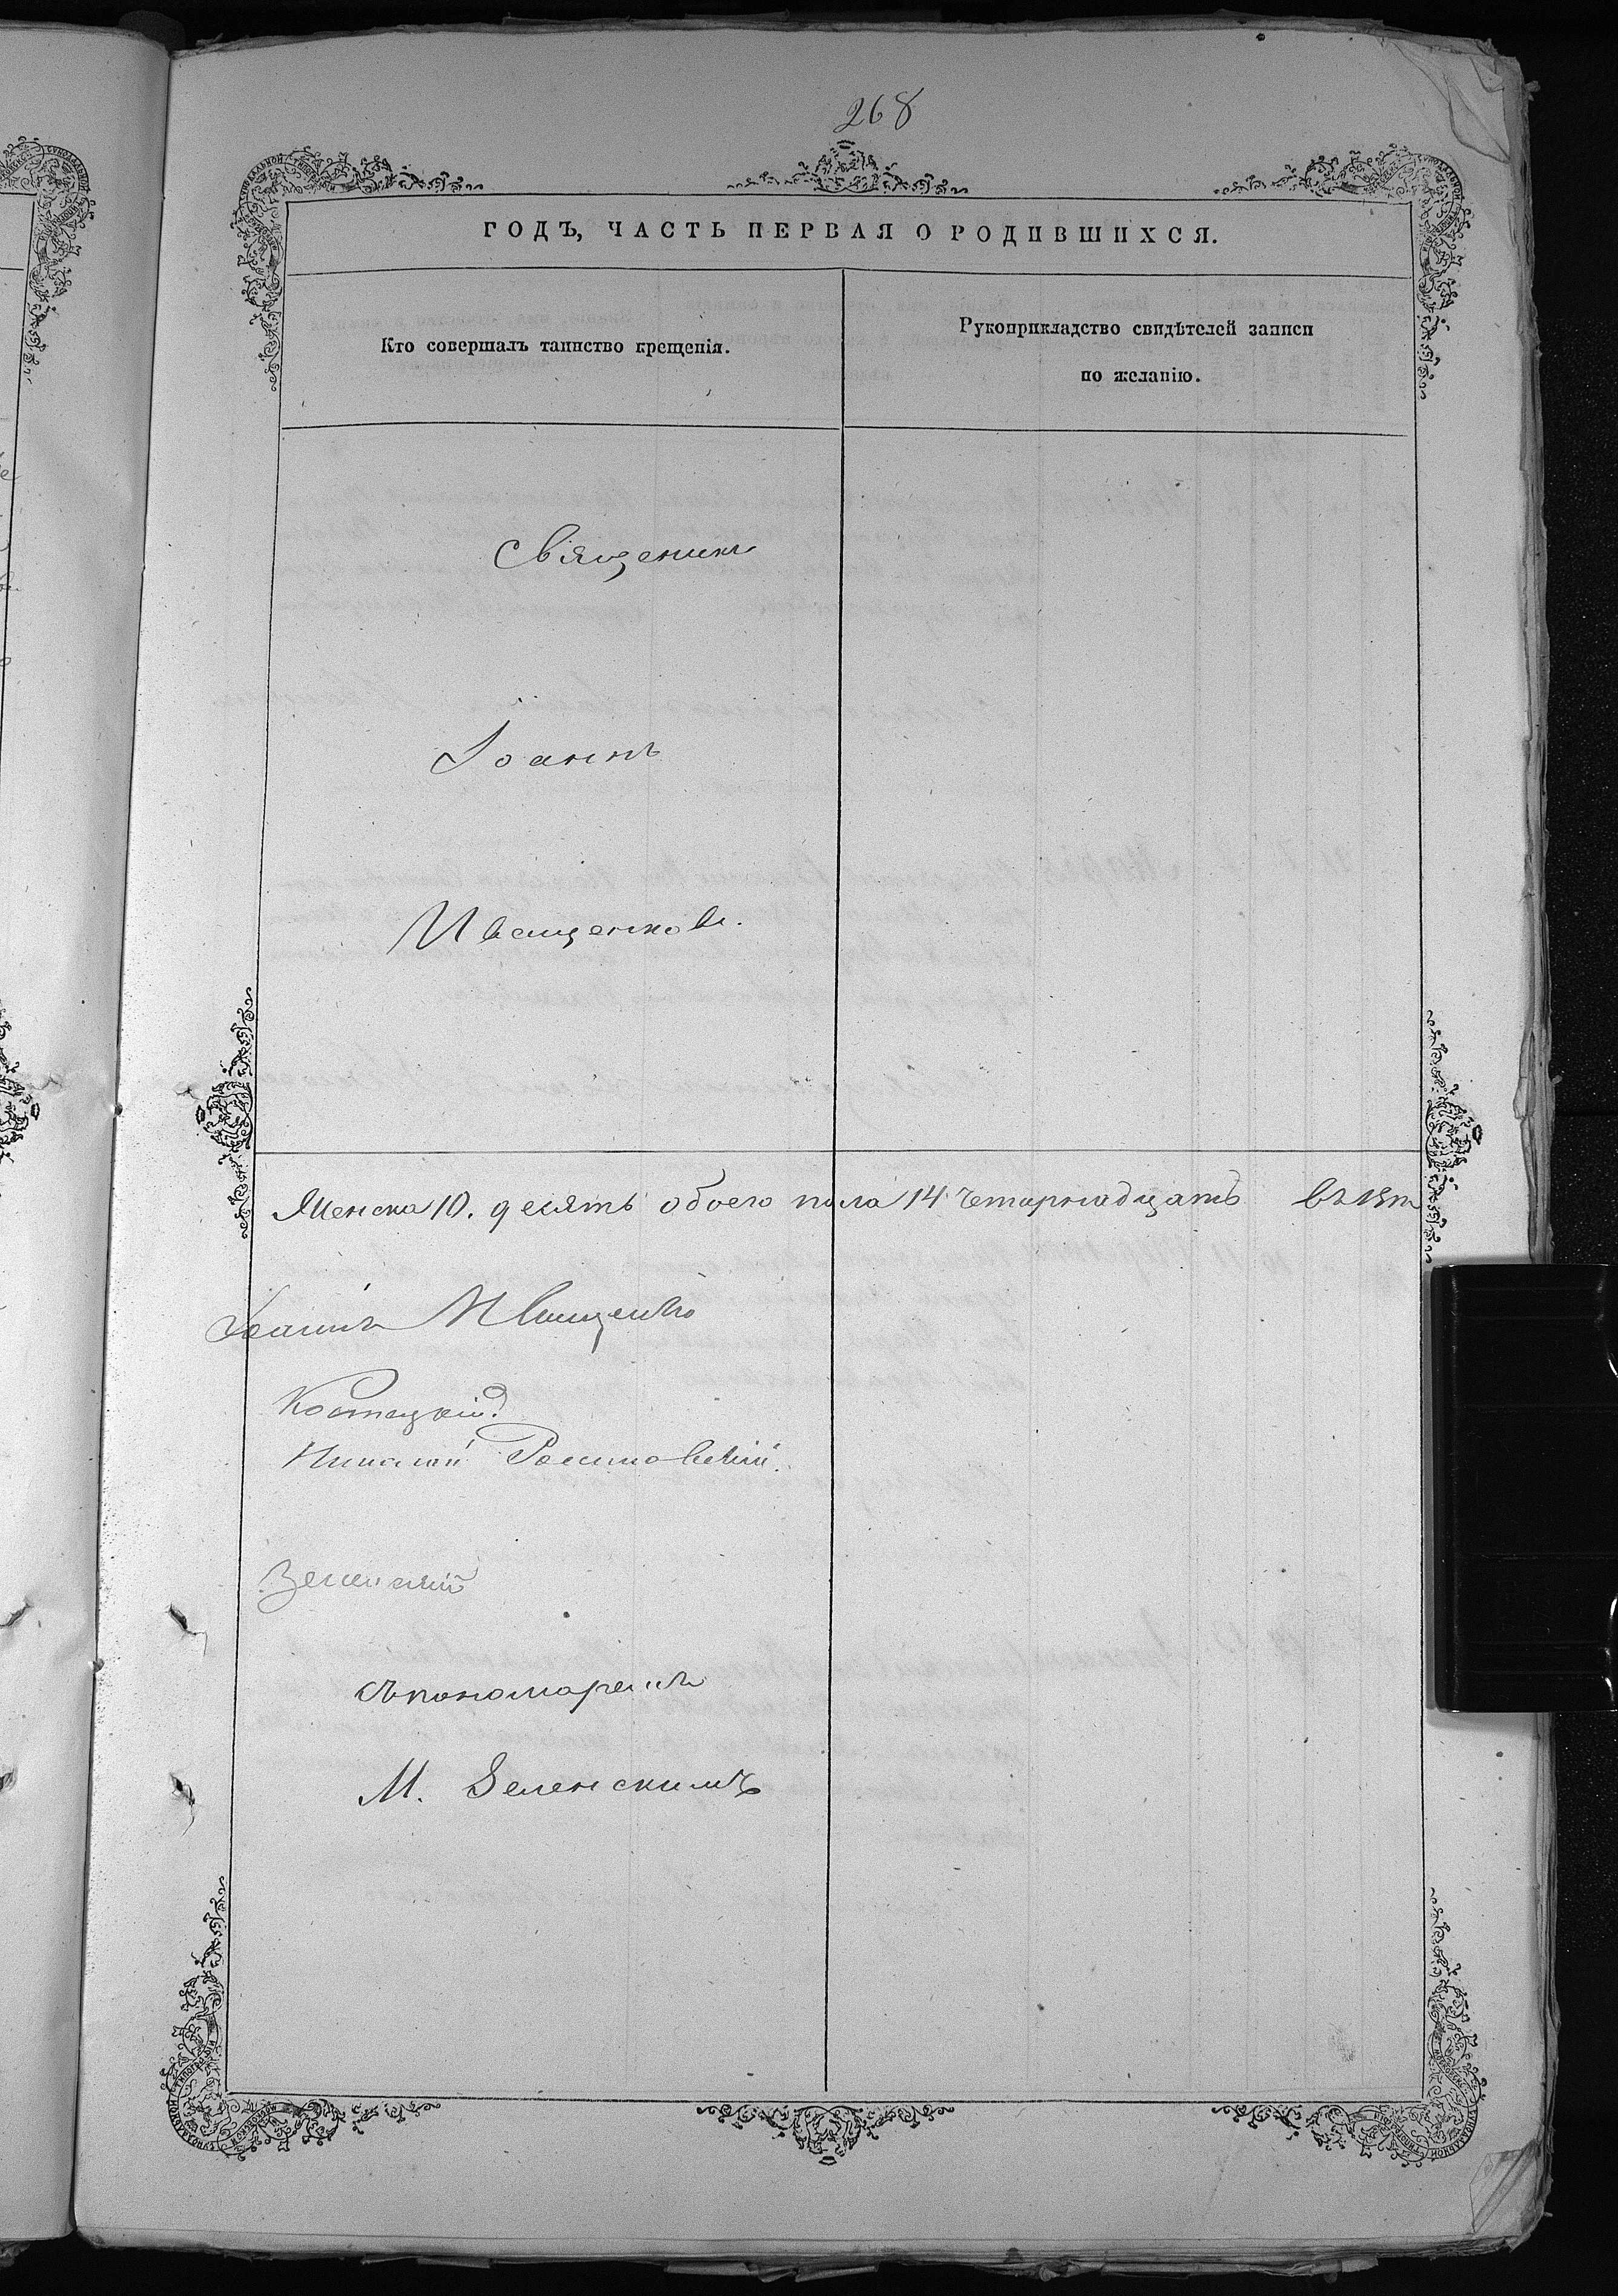 268
ГОДЪ, ЧАСТЬ ПЕРВАЯ О РОДИВШИХСЯ.
Кто совершалъ таинство крещенія.
Рукоприкладство свидѣтелей записи
по желанію.
Священикъ
Іоаннъ
Иващенковъ.
Женска 10. десять обоего пола 14 четырнадцать
Іоаннъ Иващенко
Костецкій
Николай
Зеленскій
съ пономаремъ
М. Зеленскимъ